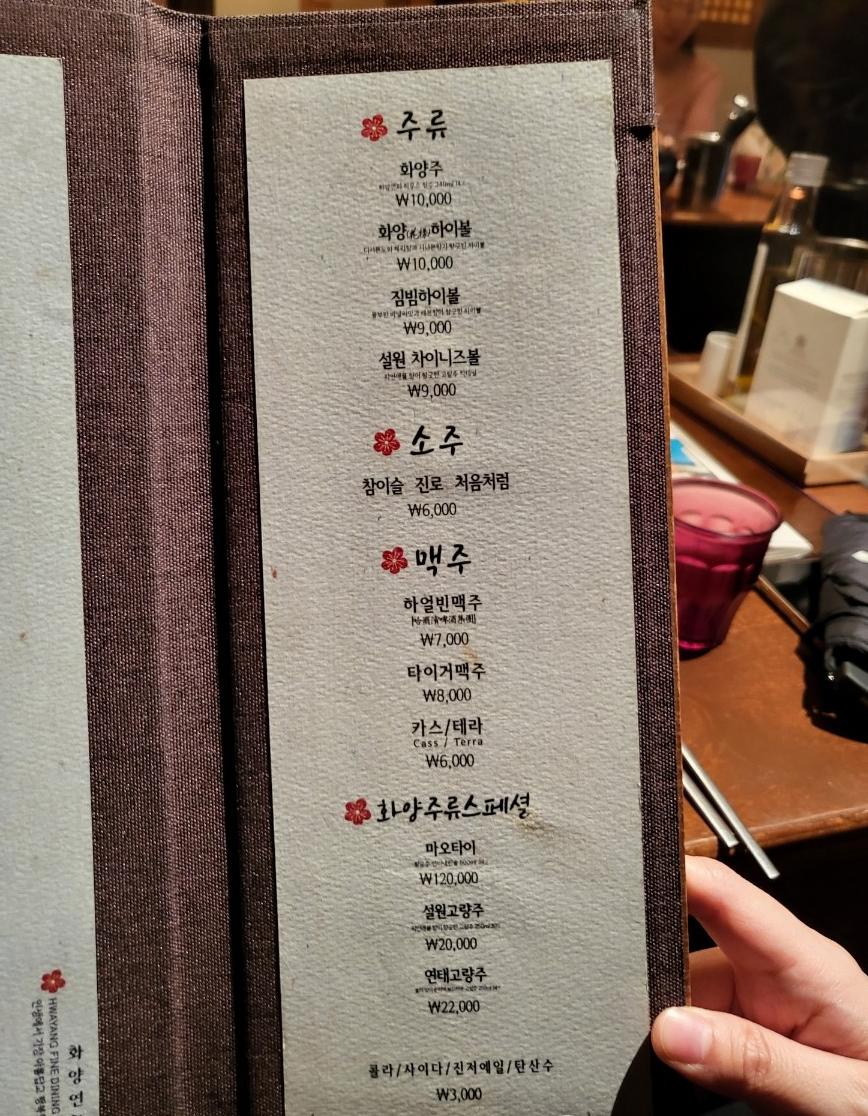 주류
화양주
₩10,000
화양(花樣)하이볼
₩10,000
짐빔하이볼
₩9,000
설원 차이니즈볼
₩9,000
소주
참이슬 진로 처음처럼
₩6,000
맥주
하얼빈맥주
₩7,000
타이거맥주
₩8,000
카스/테라
Cass / Terra
₩6,000
화양주류스페셜
마오타이
₩120,000
설원고량주
₩20,000
연태고량주
₩22,000
콜라/사이다/진저에일/탄산수
₩3,000
화양연
HWAYANG FINE DINING
가장 아름답고 행복